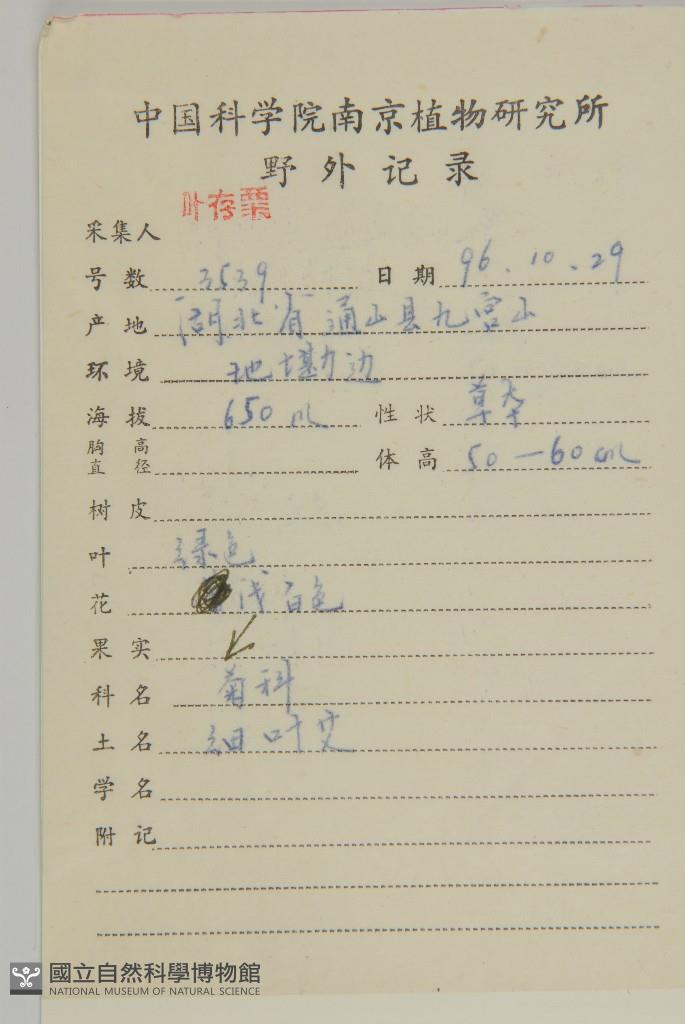 中国科学院南京植物研究所
野外记录
叶存粟
采集人
号数 3539 日期 96.10.29
产地 湖北省通山县九宫山
环境 地堪边
海拔 650m 性状 草本
胸高直径 体高 50—60cm
树皮
叶 绿色
花 浅白色
果实
科名 菊科
土名 细叶艾
学名
附记
國立自然科學博物館
NATIONAL MUSEUM OF NATURAL SCIENCE